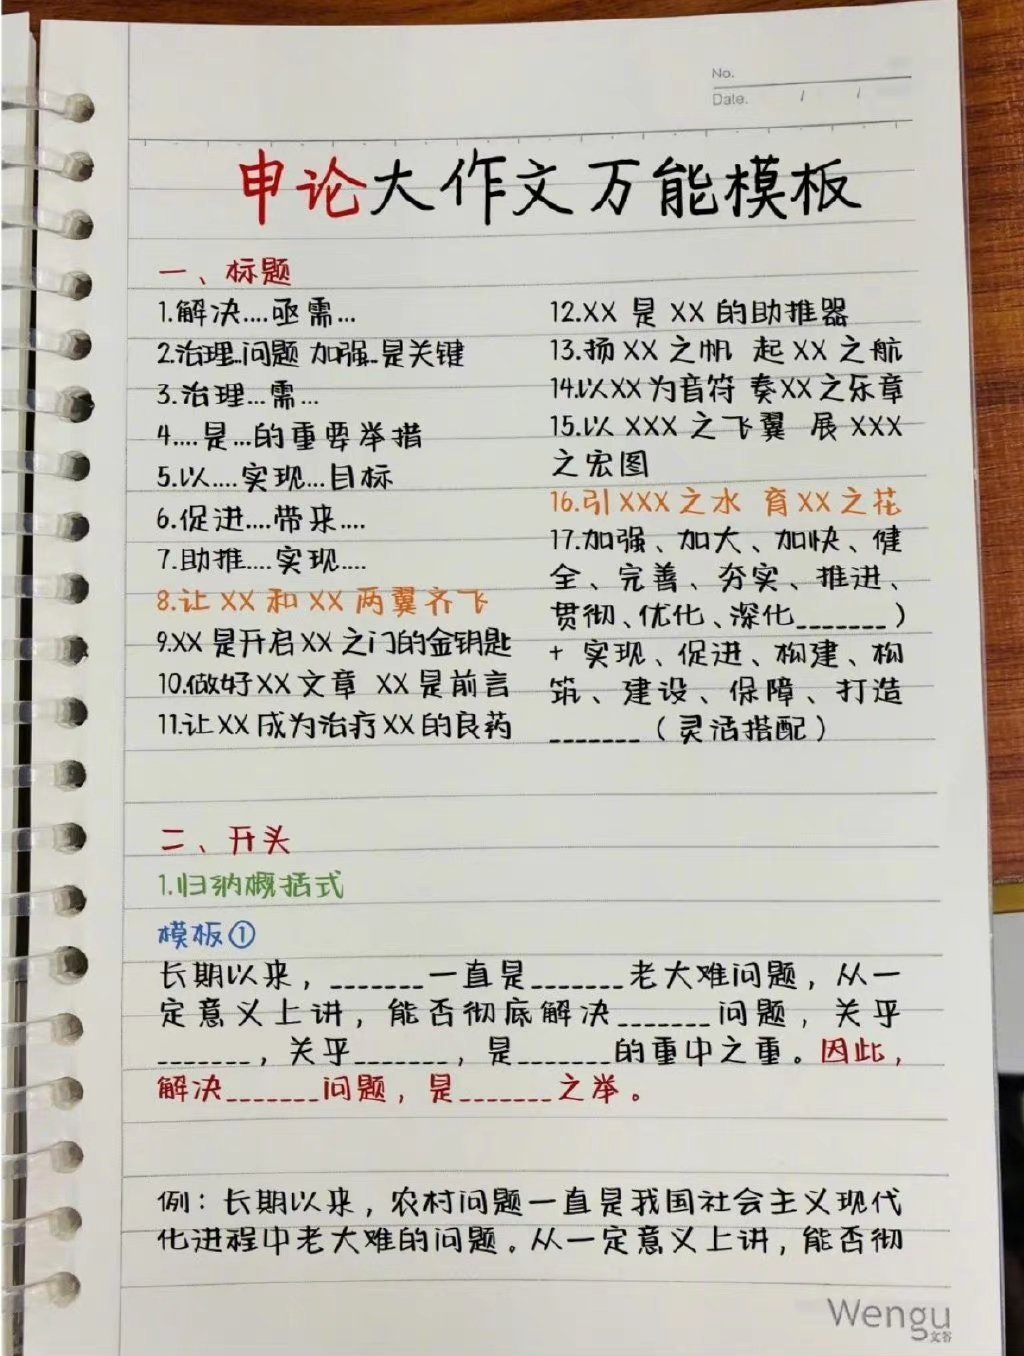 No.
Date. / /
申论大作文万能模板
一、标题
1.解决....亟需...
2.治理..问题 加强..是关键
3.治理...需...
4....是...的重要举措
5.以....实现...目标
6.促进....带来....
7.助推....实现....
8.让XX和XX两翼齐飞
9.XX是开启XX之门的金钥匙
10.做好XX文章 XX是前言
11.让XX成为治疗XX的良药
12.XX 是 XX 的助推器
13.扬XX之帆 起XX之航
14.以XX为音符 奏XX之乐章
15.以 XXX 之飞翼 展 XXX
之宏图
16.引XXX之水 育XX之花
17.加强、加大、加快、健
全、完善、夯实、推进、
贯彻、优化、深化_______）
+ 实现、促进、构建、构
筑、建设、保障、打造
_______（灵活搭配）
二、开头
1.归纳概括式
模板①
长期以来，_______一直是_______老大难问题，从一
定意义上讲，能否彻底解决_______问题，关乎
_______，关乎_______，是_______的重中之重。因此，
解决_______问题，是_______之举。
例：长期以来，农村问题一直是我国社会主义现代
化进程中老大难的问题。从一定意义上讲，能否彻
Wengu
文谷